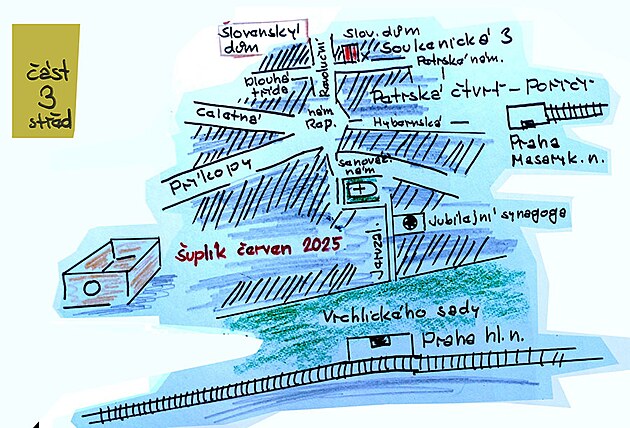 Slovenský
dům
slov. dům
Soukenická 3
Revoluční
Petrské nám.
Dlouhá
třída
část
3
střed
Petrská čtvrť - Poříčí
Celetná
nám
Rep.
Hybernská
Praha
Masaryk. n.
Příkopy
senováž.
nám
Jubilejní synagoga
Jeruzal.
Šuplík červen 2025
Vrchlického sady
Praha hl. n.